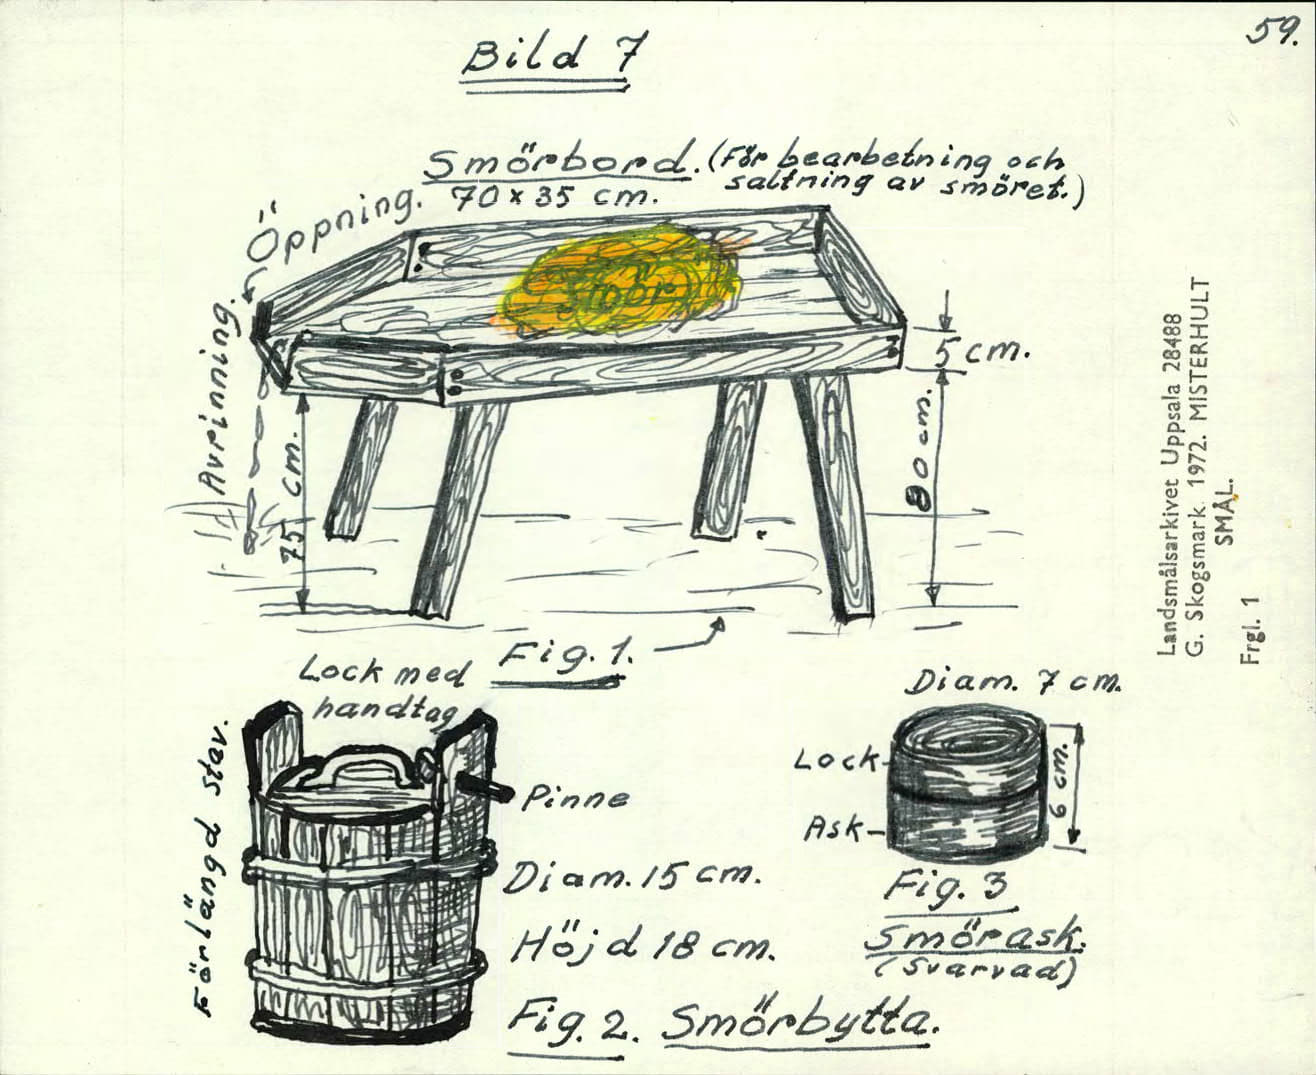 59.
Bild 7
Smörbord. (För bearbetning och
saltning av smöret.)
70 x 35 cm.
Öppning.
Avrinning.
Smör
5 cm.
75 cm.
80 cm.
Fig. 1.
Lock med
handtag
Förlängd stav.
Pinne
Diam. 15 cm.
Höjd 18 cm.
Fig. 2. Smörbytta.
Diam. 7 cm.
Lock
Ask
6 cm.
Fig. 3
Smörask.
(Svarvad)
Landsmålsarkivet Uppsala 28488
G. Skogsmark. 1972. MISTERHULT
SMÅL.
Frgl. 1